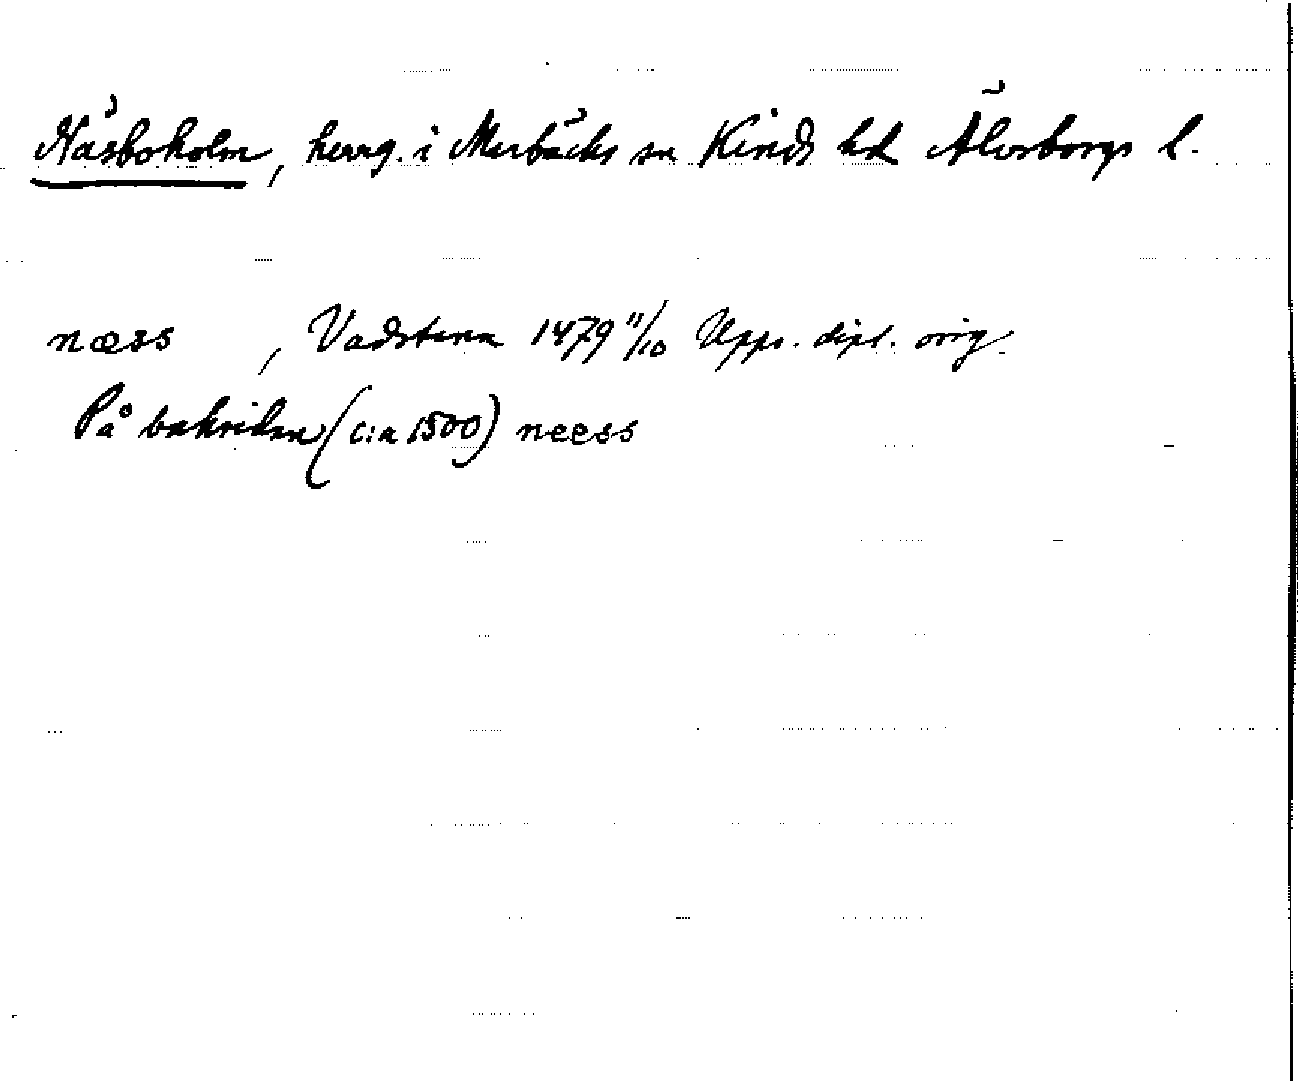 Näsboholm, herrg. i Murbäcks sn Kinds hd Älvsborgs l.
næss , Vadstena 1479 11/10 Upps. dipl. orig.
På baksidan (c:a 1500) neess